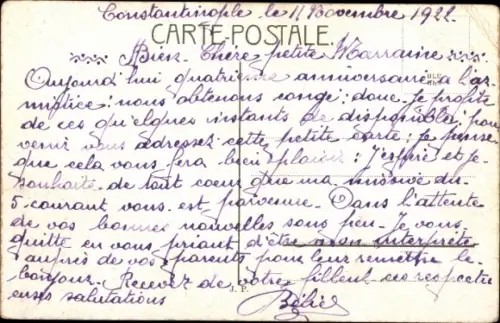 Constantinople le 11 Novembre 1922
CARTE-POSTALE.
Bien Chère petite Marraine
Aujourd'hui quatrième anniversaire de l'ar-
mistice: nous obtenons congé: donc je profite
de ces quelques instants de disponibles pour
venir vous adresser cette petite carte: je pense
que cela vous fera bien plaisir: J'espère et je
souhaite de tout cœur que ma missive du
5 courant vous est parvenue. Dans l'attente
de vos bonnes nouvelles sous peu. Je vous
quitte en vous priant d'être mon interprète
auprès de vos parents pour leur remettre le
bonjour. Recevez de votre filleul ces respectu
euses salutations
J. P.